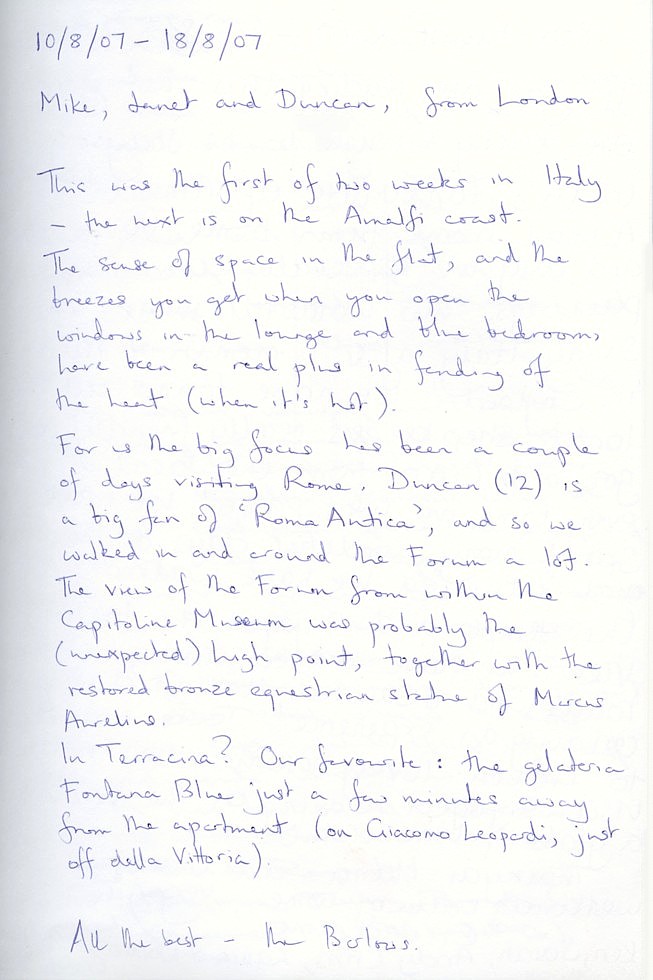 10/8/07 – 18/8/07
Mike, Janet and Duncan, from London
This was the first of two weeks in Italy
– the next is on the Amalfi coast.
The sense of space in the flat, and the
breezes you get when you open the
windows in the lounge and blue bedroom,
have been a real plus in fending of
the heat (when it's hot).
For us the big focus has been a couple
of days visiting Rome. Duncan (12) is
a big fan of 'Roma Antica', and so we
walked in and around the Forum a lot.
The view of the Forum from within the
Capitoline Museum was probably the
(unexpected) high point, together with the
restored bronze equestrian statue of Marcus
Aurelius.
In Terracina? Our favourite: the gelateria
Fontana Blue just a few minutes away
from the apartment (on Giacomo Leopardi, just
off della Vittoria).
All the best – the